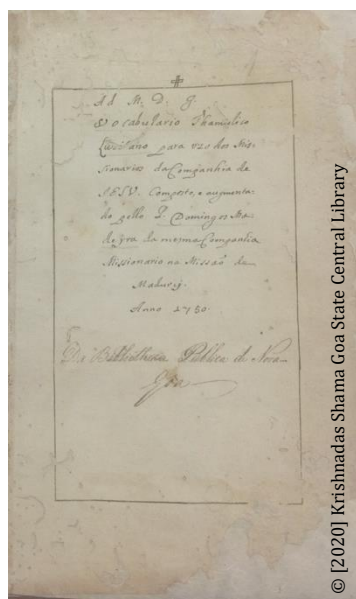 Ad M. D. G.
Vocabulario Thamulico
Lusitano para uzo dos Mis-
sionarios da Companhia de
JESV. Composto, e augmenta-
do pello P. Domingos Ma-
deyra da mesma Companhia
Missionario na Missaõ de
Madurey.
Anno 1750.
Da Bibliotheca Publica de Nova-
Goa
© [2020] Krishnadas Shama Goa State Central Library